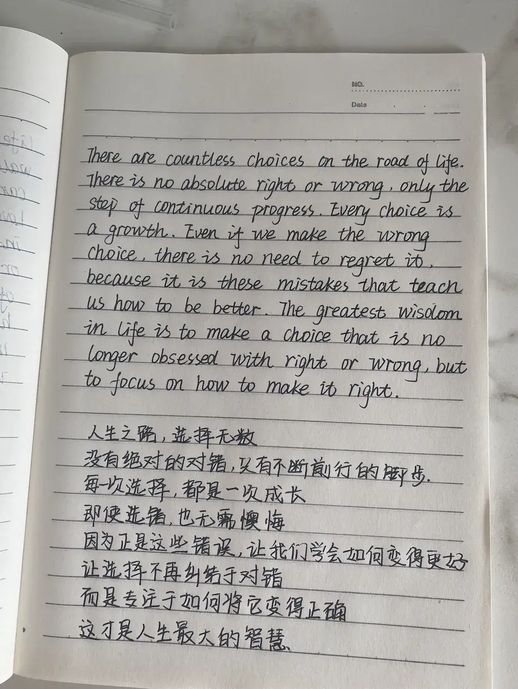 NO.
Date
There are countless choices on the road of life.
There is no absolute right or wrong, only the
step of continuous progress. Every choice is
a growth. Even if we make the wrong
choice, there is no need to regret it,
because it is these mistakes that teach
us how to be better. The greatest wisdom
in life is to make a choice that is no
longer obsessed with right or wrong, but
to focus on how to make it right.
人生之路,选择无数
没有绝对的对错,只有不断前行的脚步.
每一次选择,都是一次成长
即使选错,也无需懊悔
因为正是这些错误,让我们学会如何变得更好
让选择不再纠结于对错
而是专注于如何将它变得正确
这才是人生最大的智慧